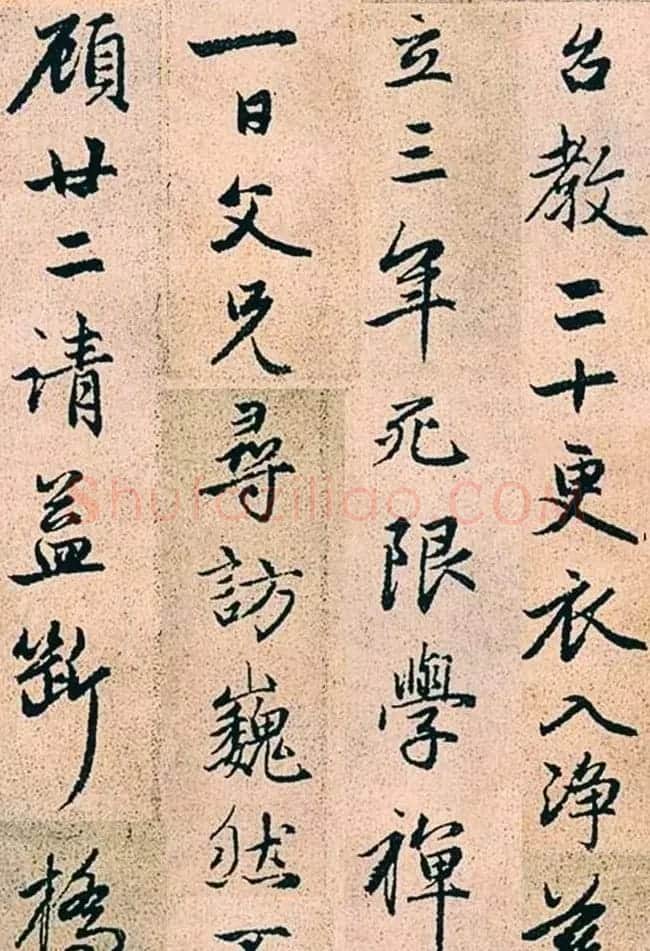 台教二十更衣入淨
立三年死限學禪
一日父兄尋訪巍然不
顧廿二請益斷橋
Shufaziliao.COM